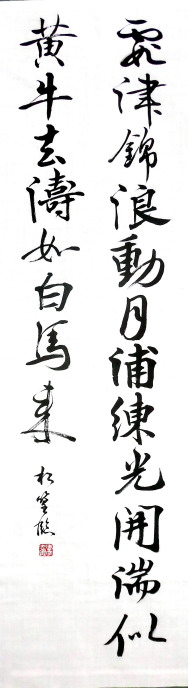 霞津錦浪動月浦練光開湍似
黄牛去濤如白馬来